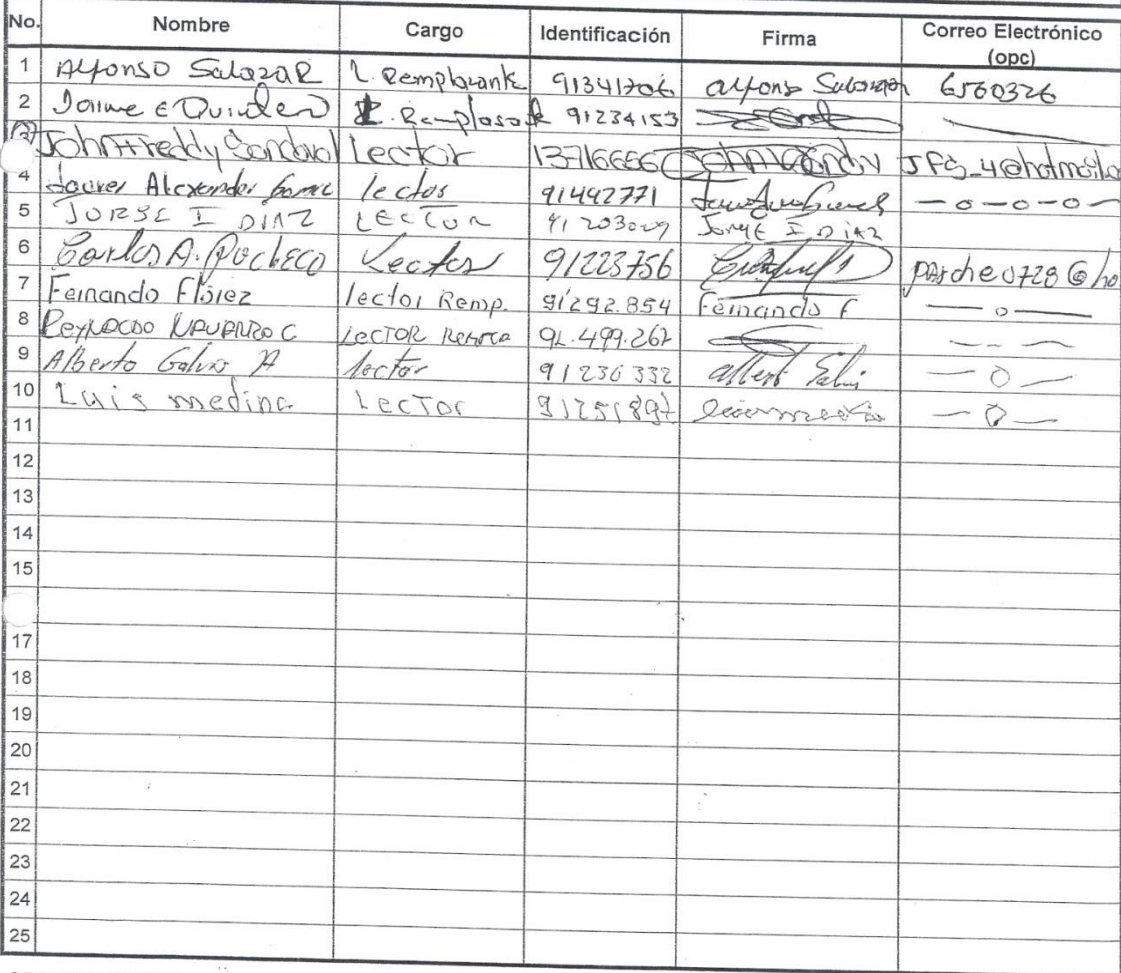 No. Nombre Cargo Identificación Firma Correo Electrónico (opc)
1 Alfonso Salazar L. Remplazante 91341706 Alfonso Salazar 6560326
2 Jaime E 91234153
3 John Freddy Sandoval Lector 13716656 JFS_4@hotmail.
4 Javier Alexander lector 91442771 — o — o — o —
5 JORGE I DIAZ LECTOR JORGE I DIAZ
6 Carlos A. Pacheco Lector 91223756 parche0728@ho
7 Fernando Flórez lector Remp. 91292.854 Fernando F — o —
8 Reynaldo Navarro C LECTOR 91.499.267
9 Alberto Galvis A lector 91236332 — o —
10 Luis medina Lector — o —
11
12
13
14
15
17
18
19
20
21
22
23
24
25